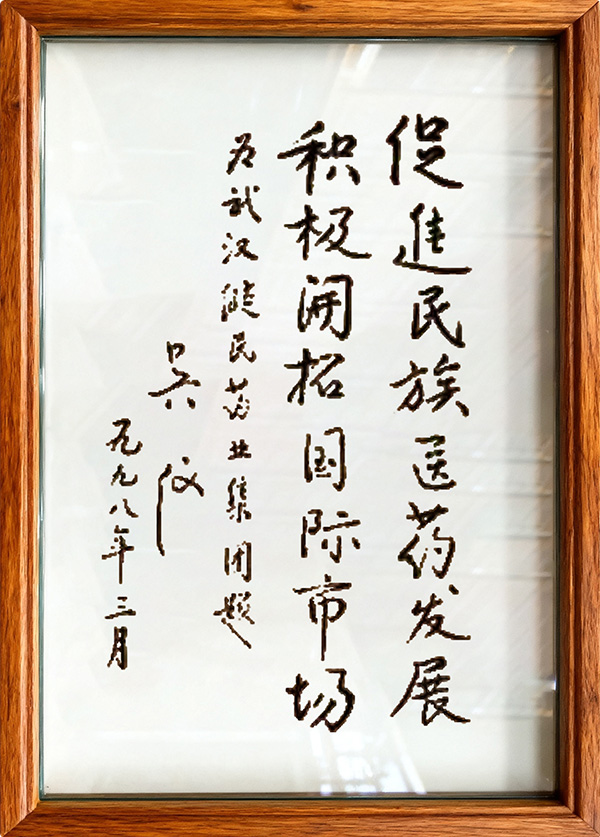 促進民族医药发展
积极開拓国际市场
为武汉健民药业集团题
吴仪
一九九八年三月